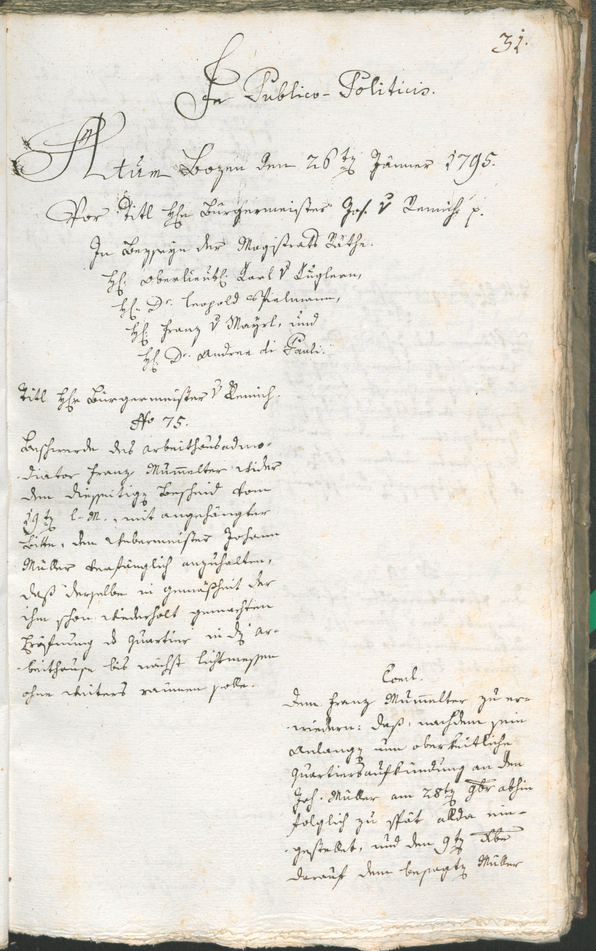 31.
In Publico-Politicis.
Actum Bozen den 26ten Jänner 1795.
Vor Titl Hh. Bürgermeister Jos. v Remich p.
In Beyseyn der Magistrats Räthe.
Hh. Oberlieutl. Carl v Tuglern,
Hl. Dr. Leopold Pielmann,
Hl. Franz v Mayrl, und
Hl. Dr. Andree di Pauli.
Titl Hh Bürgermeister v Remich
No 75.
Beschwerde des Arbeithausadmo-
diator Franz Mumelter wider
den diesseitigen Bescheid vom
19ten l. M. mit angehängter
Bitte, dem Webermeister Johann
Müller verfänglich anzuhalten,
daß derselbe in gemäßheit der
ihm schon wiederholt gemachten
Eröfnung das Quartier in dem Ar-
beithause bis nächst Lichtmessen
ohne weiters raumen solle.
Concl.
Dem Franz Mumelter zu er-
wiedern: daß, nachdem sein
Anlangen um oberkeitliche
Quartiersaufkündung an den
Joh. Müller am 28ten 9ber abhin
folglich zu spät allda ein-
gestellt, und den 9ten Xber
darauf dem besagten Müller